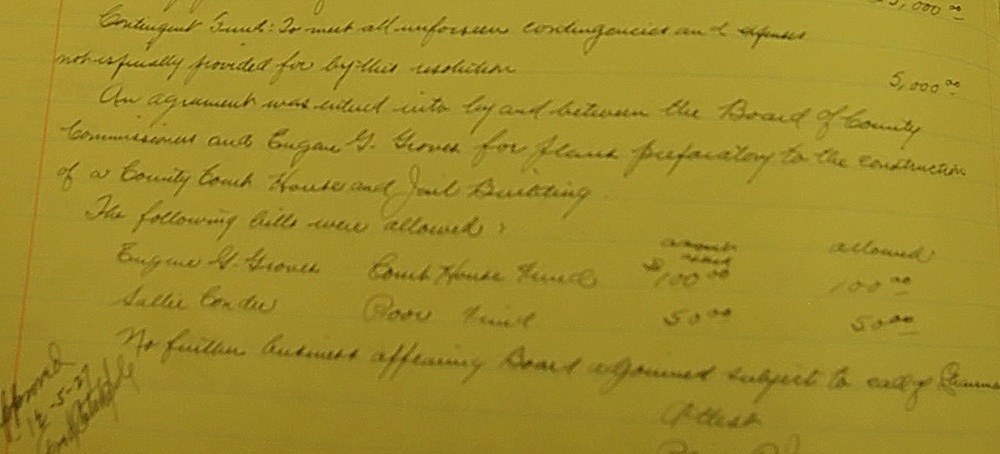 5,000 00
Contingent Fund: To meet all unforseen contingencies and expenses
not espically provided for by this resolution 5,000 00
An agrument was entued into by and between the Board of County
Commissioners and Eugene G. Groves for plans prefaratory to the construction
of a County Court House and Jail Building.
The following bills were allowed:
allowed
Eugene G. Groves Court House Fund $100 00 100 00
Sallie Conder Poor Fund 50 00 50 00
No further business appearing Board adjourned subject to call of
Attest
Approved
12-5-27